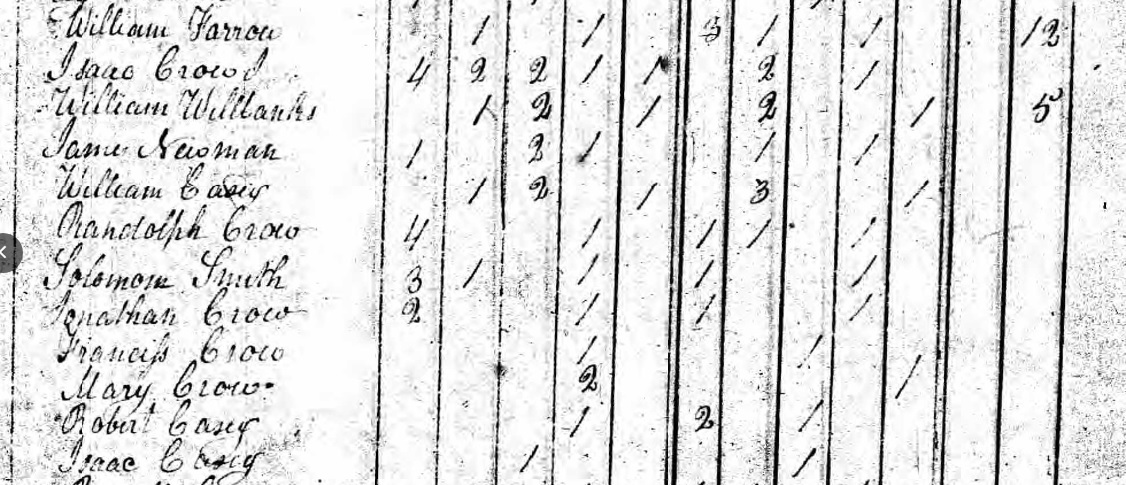 William Farrow 1 1 3 1 1 12
Isaac Crow 4 2 2 1 1 2 1
William Willbanks 1 2 1 2 1 5
Jame Newman 1 2 1 1 1
William Casey 1 2 1 3 1
Randolph Crow 4 1 1 1 1
Solomom Smith 3 1 1 1 1
Jonathan Crow 2 1 1 1
Francis Crow 1 1
Mary Crow 2 1
Robert Casey 1 2 1
Isaac Casey 1 1